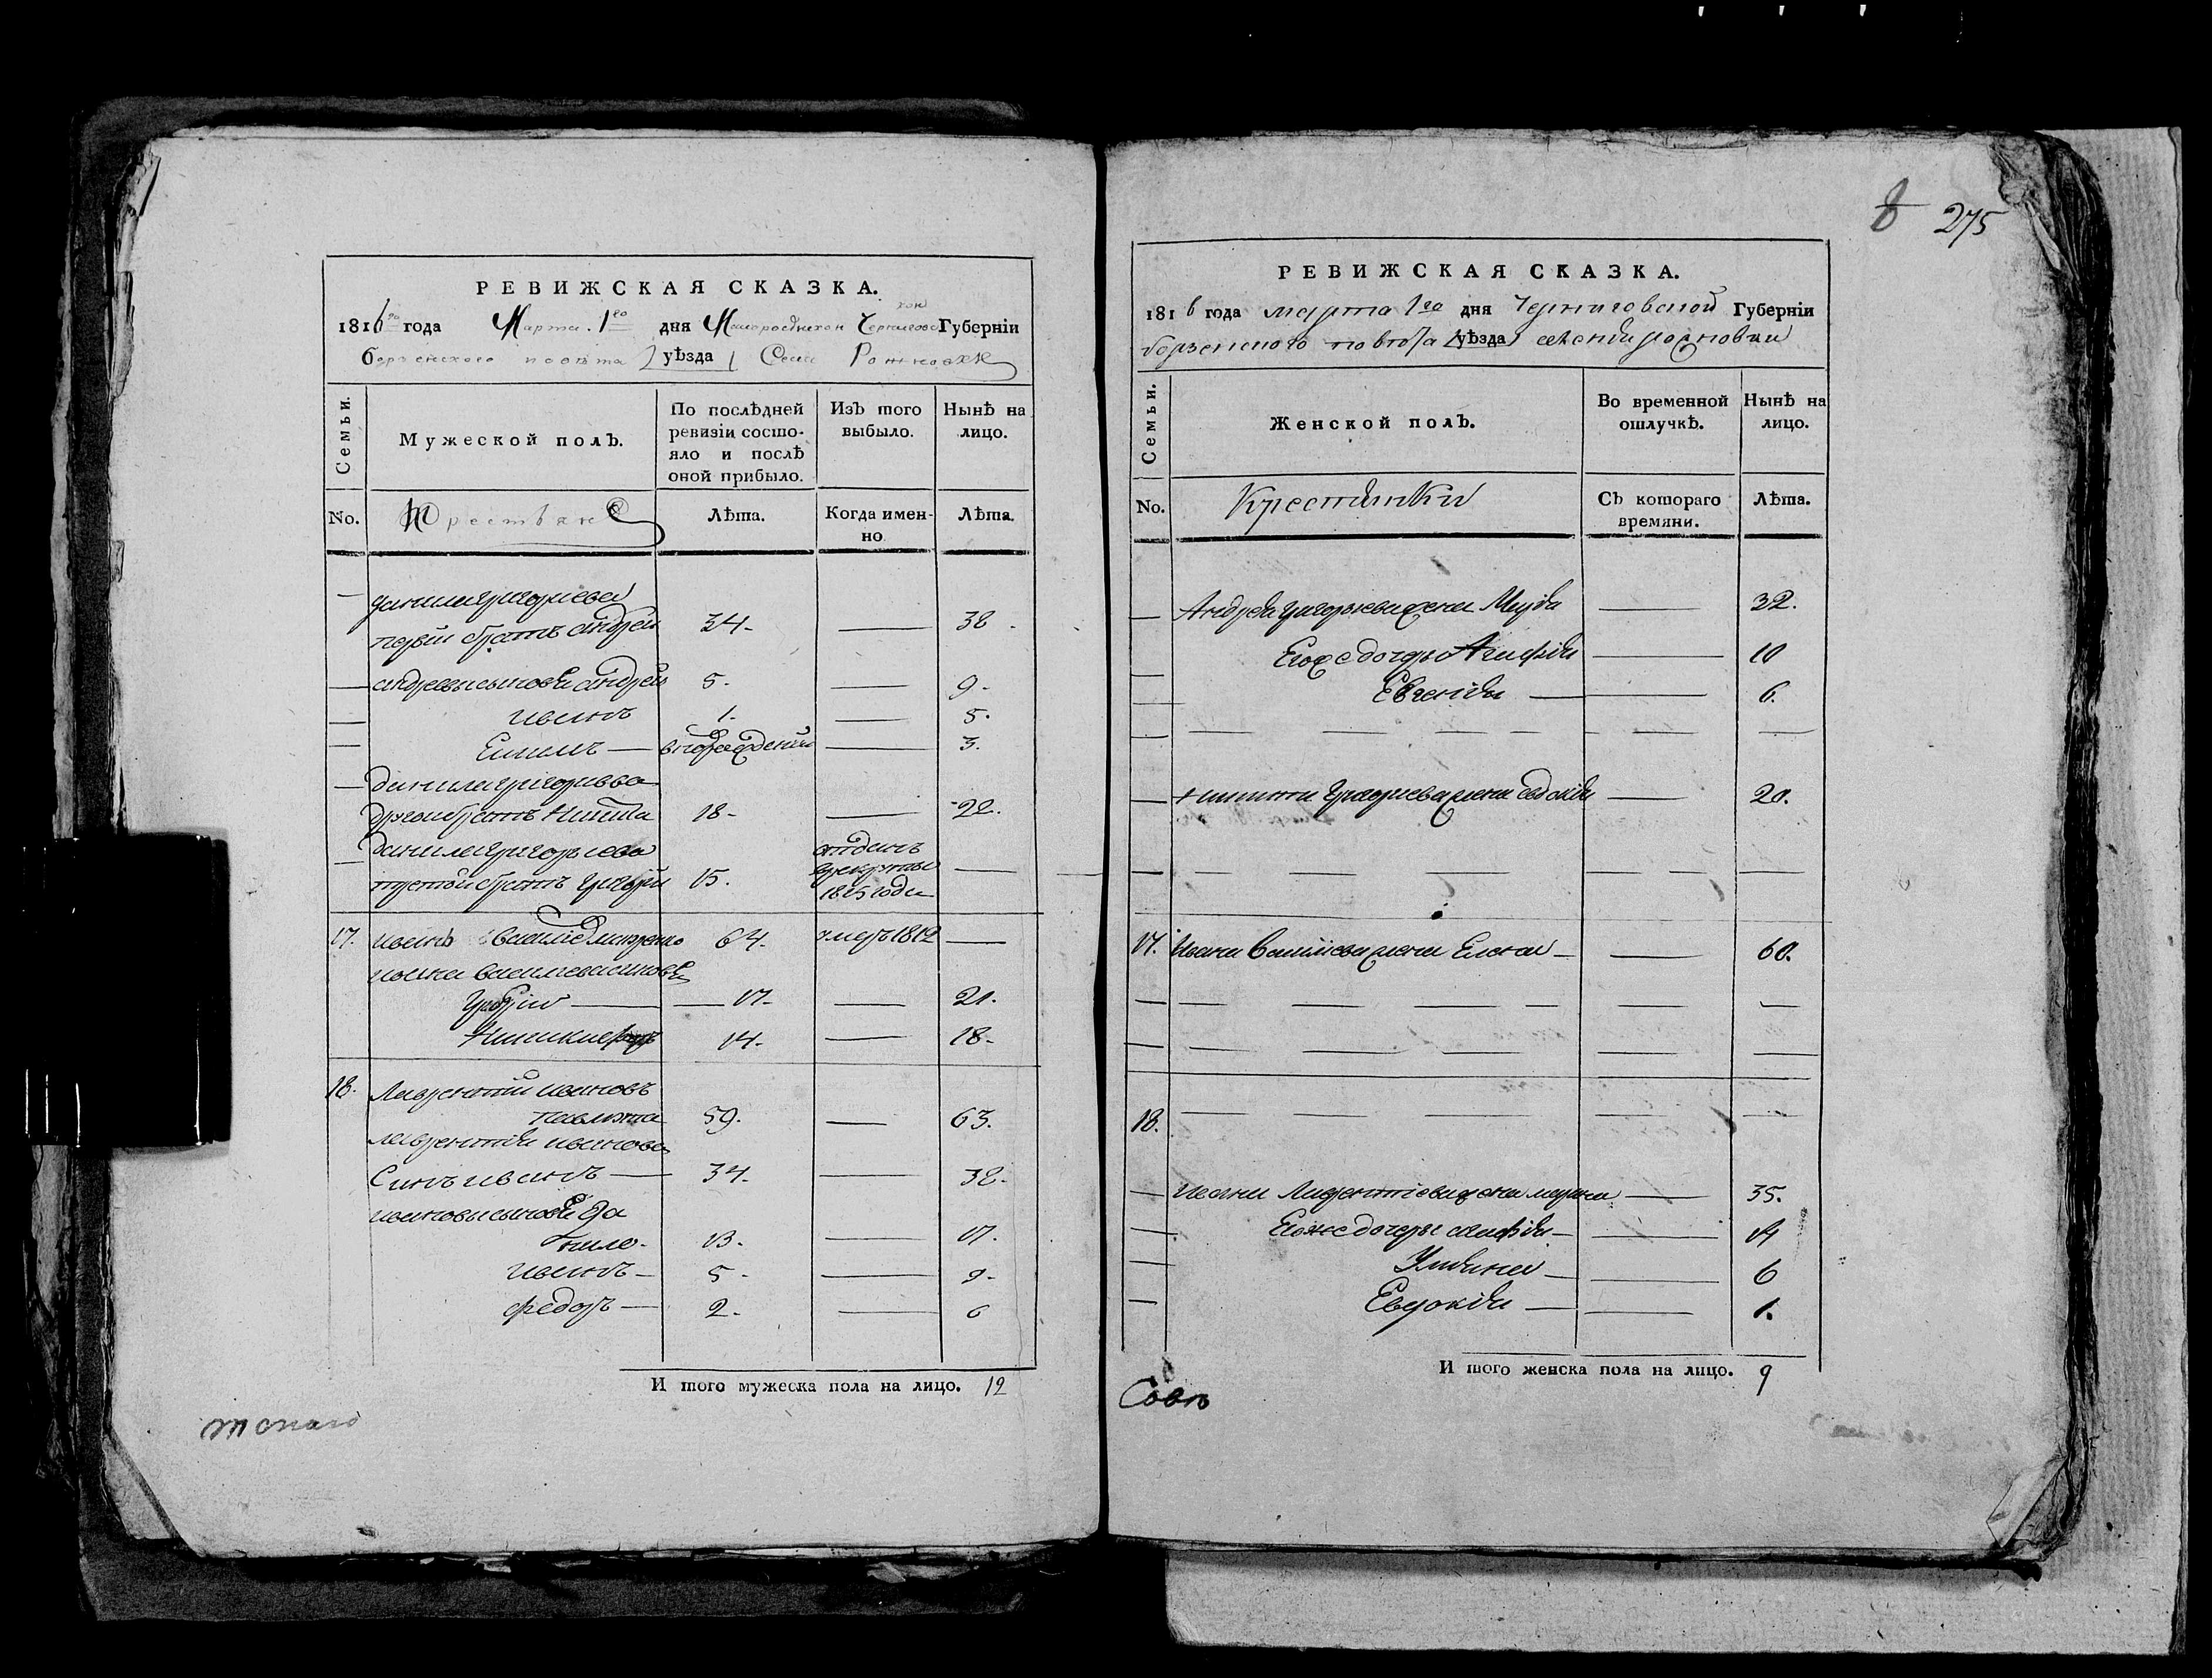 РЕВИЖСКАЯ СКАЗКА.
1816го года Марта 1го дня Малоросійской Черниговской Губерніи
борзенского повѣта уѣзда Села Рожновки
Семьи.
Мужеской полъ.
По послѣдней ревизіи состо-
яло и послѣ
оной прибыло.
Изъ того
выбыло.
Нынѣ на
лицо.
No.
Крестьяне
Лѣта.
Когда имен-
но
Лѣта.
данила григориева
первій братъ андрей 34. 38
андреевы сыновя андрей 5. 9.
иванъ 1. 5.
3.
данила григориева
другой братъ Никита 18. 22.
данила григориева отданъ
третой братъ григорій 15. в рекруты
1815 года
17. иванъ василіев 64. умеръ 1812
ивана василиева синовѣ
17. 21.
14. 18.
18. Лаврентій ивановъ
59. 63.
лаврентия иванова
Синъ иванъ 34. 38.
ивановы сыновѣ Да
нило. 13. 17.
иванъ 5. 9.
федоръ 2. 6
И того мужеска пола на лицо. 12
8 275
РЕВИЖСКАЯ СКАЗКА.
1816 года марта 1го дня Черниговской Губерніи
борзенского повѣта уѣзда
Семьи.
Женской полъ.
Во временной
отлучкѣ.
Нынѣ на
лицо.
No.
Крестянки
Съ котораго
времяни.
Лѣта.
Андрея григорьева жена Марія 32.
Егоже дочеры Агафія 10
Евгенія 6.
Никити григориева жена евдокія 20.
17. Ивана василиева жена Елена 60.
18.
Ивана Лаврентіева жена марина 35.
Егоже дочеры агафія 14
Уляна 6
Евдокія 1.
И того женска пола на лицо. 9